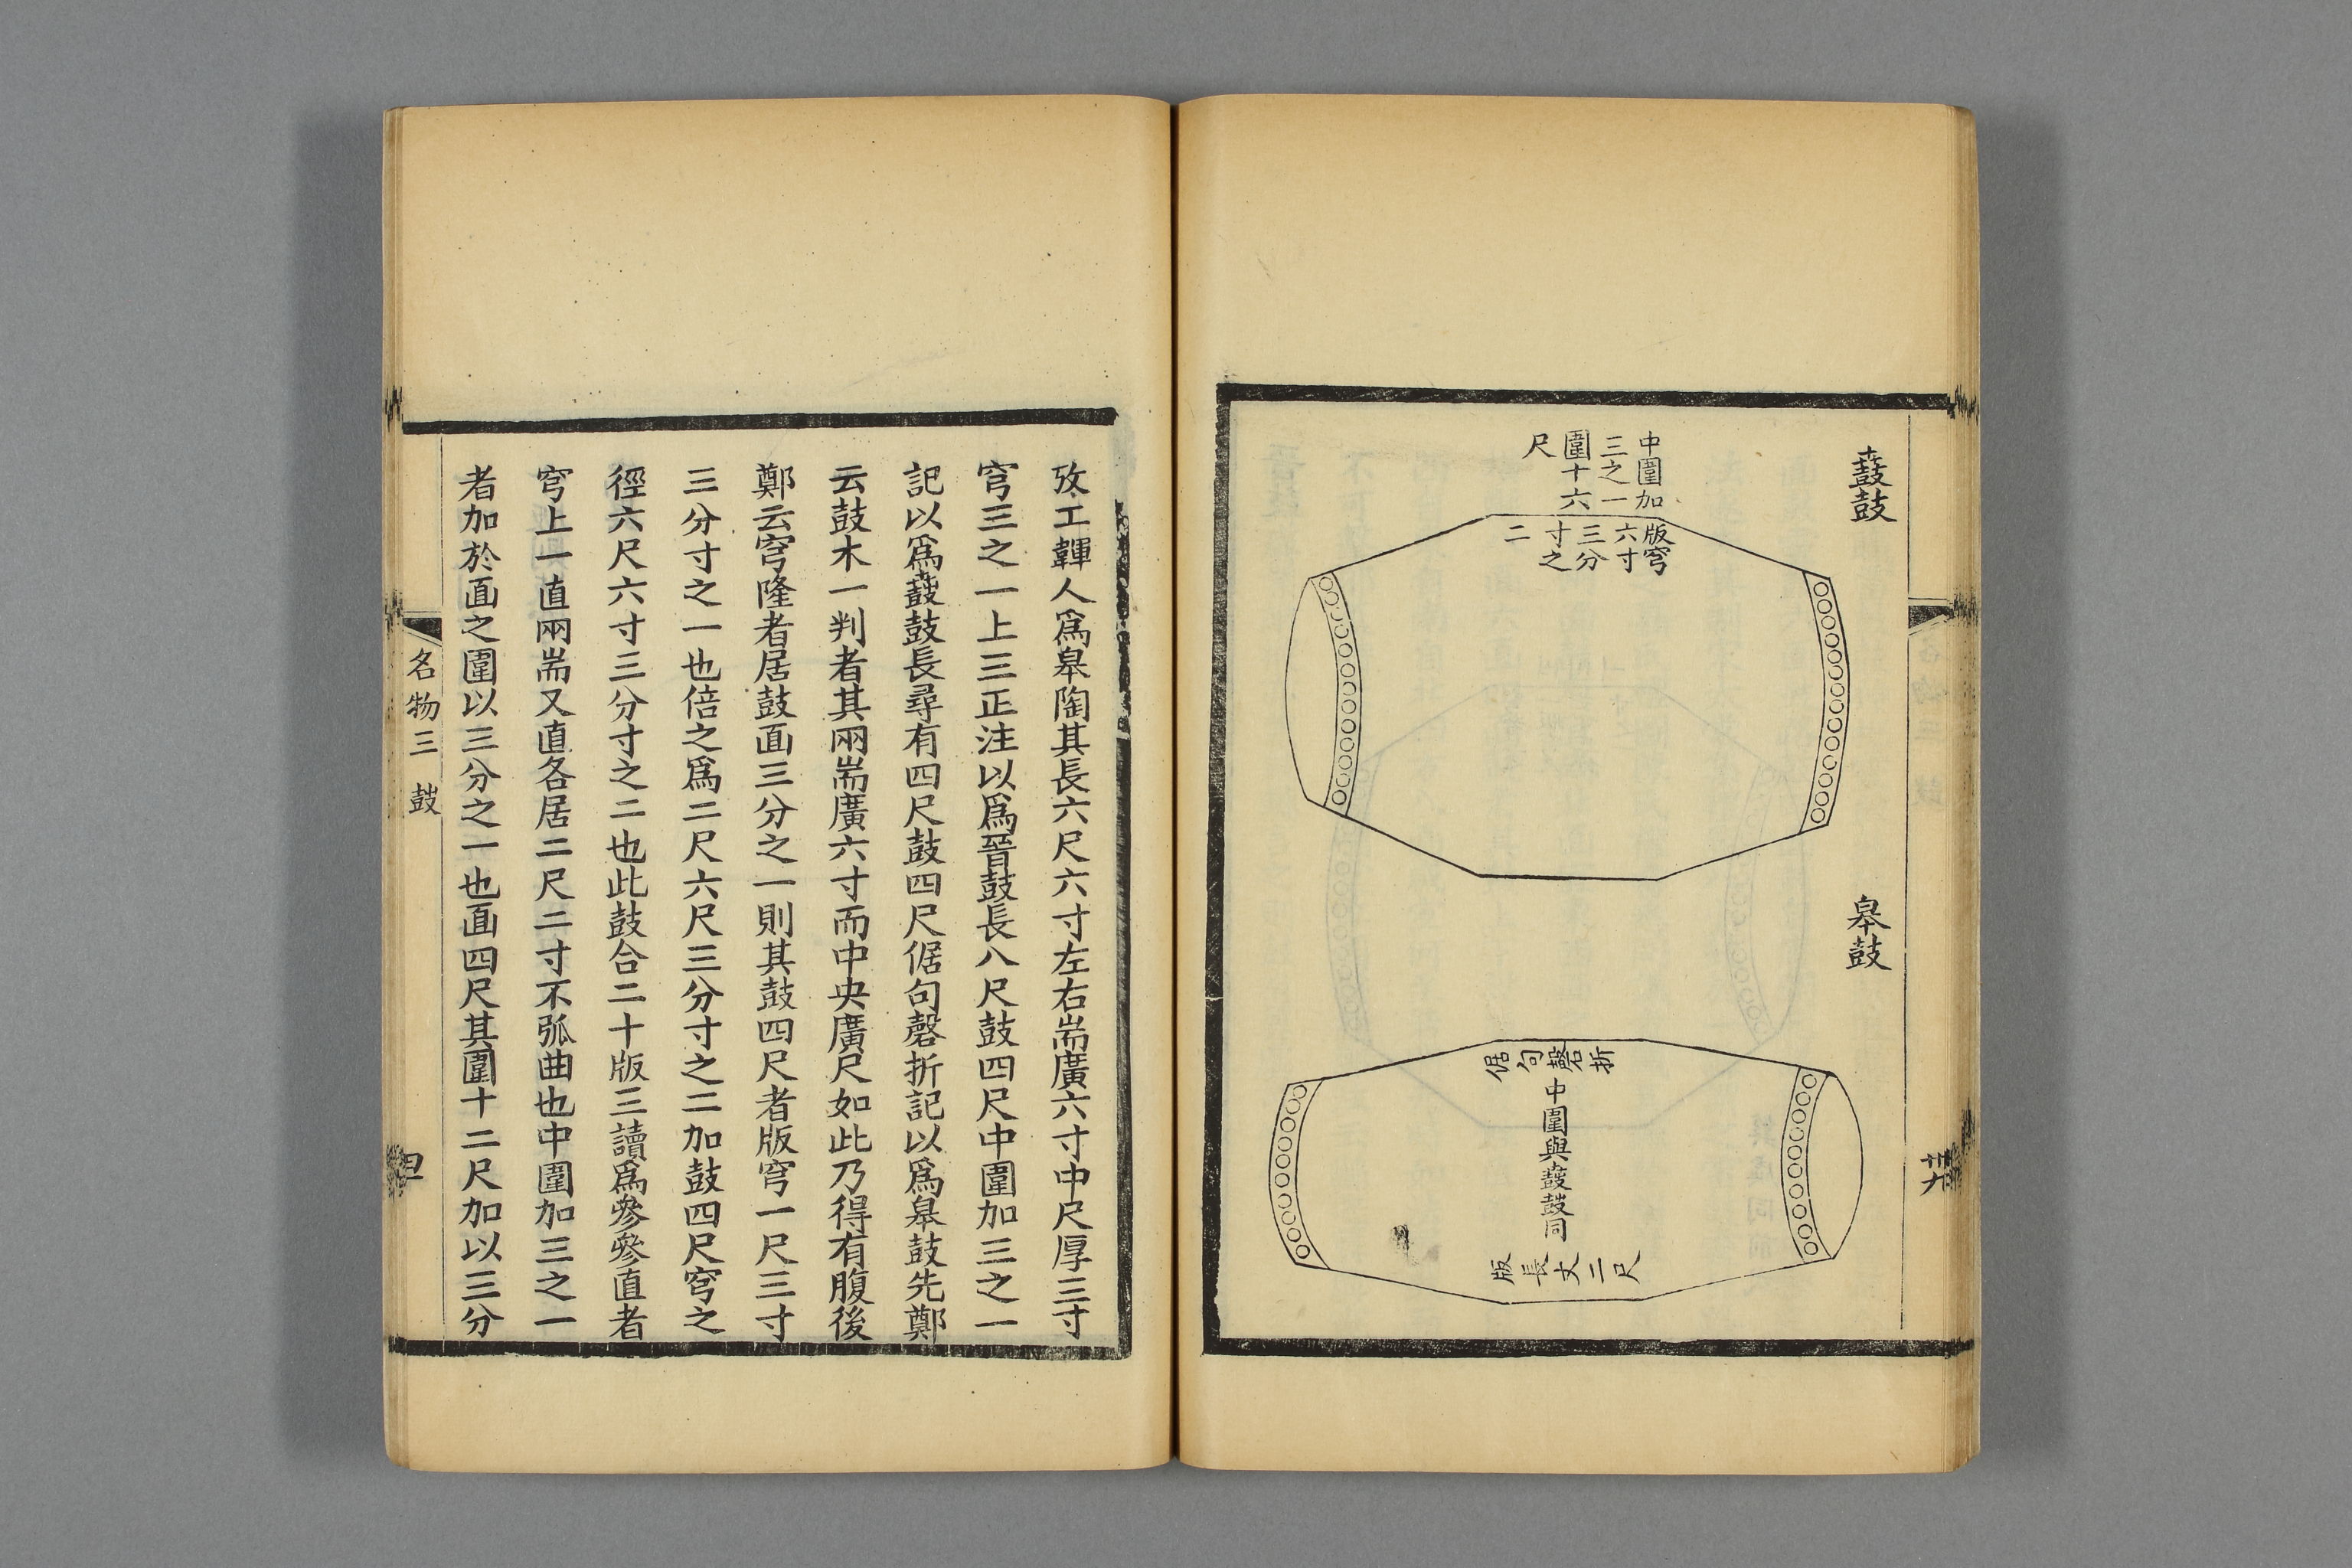 鼖鼓
中圍加
三之一
圍十六
尺
版穹
六寸
三分
寸之
二
皋鼓
倨句磬折
中圍與鼖鼓同
版長丈二尺
攷工韗人爲皋陶其長六尺六寸左右耑廣六寸中尺厚三寸
穹三之一上三正注以爲晉鼓長八尺鼓四尺中圍加三之一
記以爲鼖鼓長尋有四尺鼓四尺倨句磬折記以爲皋鼓先鄭
云鼓木一判者其兩耑廣六寸而中央廣尺如此乃得有腹後
鄭云穹隆者居鼓面三分之一則其鼓四尺者版穹一尺三寸
三分寸之一也倍之爲二尺六尺三分寸之二加鼓四尺穹之
徑六尺六寸三分寸之二也此鼓合二十版三讀爲參參直者
穹上一直兩耑又直各居二尺二寸不弧曲也中圍加三之一
者加於面之圍以三分之一也面四尺其圍十二尺加以三分
名物三 鼓